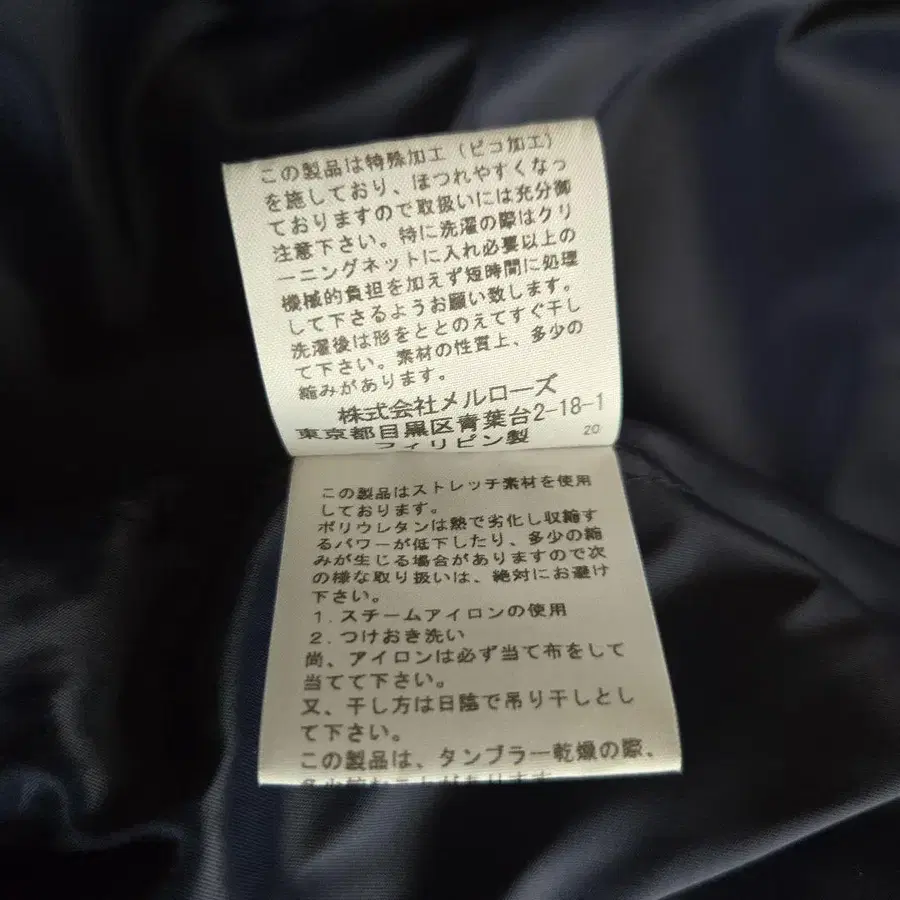 この製品は特殊加工(ピコ加工)
を施しており、ほつれやすくなっ
ておりますので取扱いには充分御
注意下さい。特に洗濯の際はクリ
ーニングネットに入れ必要以上の
機械的負担を加えず短時間に処理
して下さるようお願い致します。
洗濯後は形をととのえてすぐ干し
て下さい。素材の性質上、多少の
縮みがあります。
株式会社メルローズ
東京都目黒区青葉台2-18-1
フィリピン製 20
この製品はストレッチ素材を使用
しております。
ポリウレタンは熱で劣化し収縮す
るパワーが低下したり、多少の縮
みが生じる場合がありますので次
の様な取り扱いは、絶対にお避け
下さい。
1.スチームアイロンの使用
2.つけおき洗い
尚、アイロンは必ず当て布をして
当てて下さい。
又、干し方は日陰で吊り干しとし
て下さい。
この製品は、タンブラー乾燥の際、